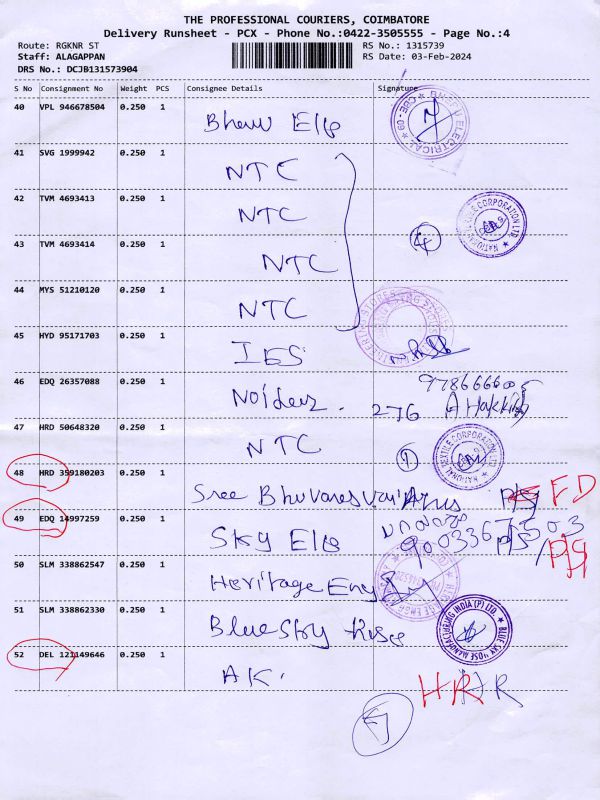 THE PROFESSIONAL COURIERS, COIMBATORE
Delivery Runsheet - PCX - Phone No.:0422-3505555 - Page No.:4
Route: RGKNR ST RS No.: 1315739
Staff: ALAGAPPAN RS Date: 03-Feb-2024
DRS No.: DCJB131573904
S No Consignment No Weight PCS Consignee Details Signature
40 VPL 946678504 0.250 1
Elo
ELECTRICAL CBE-09
41 SVG 1999942 0.250 1
NTC
42 TVM 4693413 0.250 1
NTC 4 NATIONAL TEXTILE CORPORATION LTD.
43 TVM 4693414 0.250 1
NTC
44 MYS 51210120 0.250 1
NTC
45 HYD 95171703 0.250 1
IES
46 EDQ 26357088 0.250 1
276
47 HRD 50648320 0.250 1
NTC 1 NATIONAL TEXTILE CORPORATION LTD.
48 HRD 359180203 0.250 1
Sree FD
49 EDQ 14997259 0.250 1
Sky Elo
50 SLM 338862547 0.250 1
Heritage Eng
51 SLM 338862330 0.250 1
BlueSky Rise
52 DEL 121149646 0.250 1
AK.